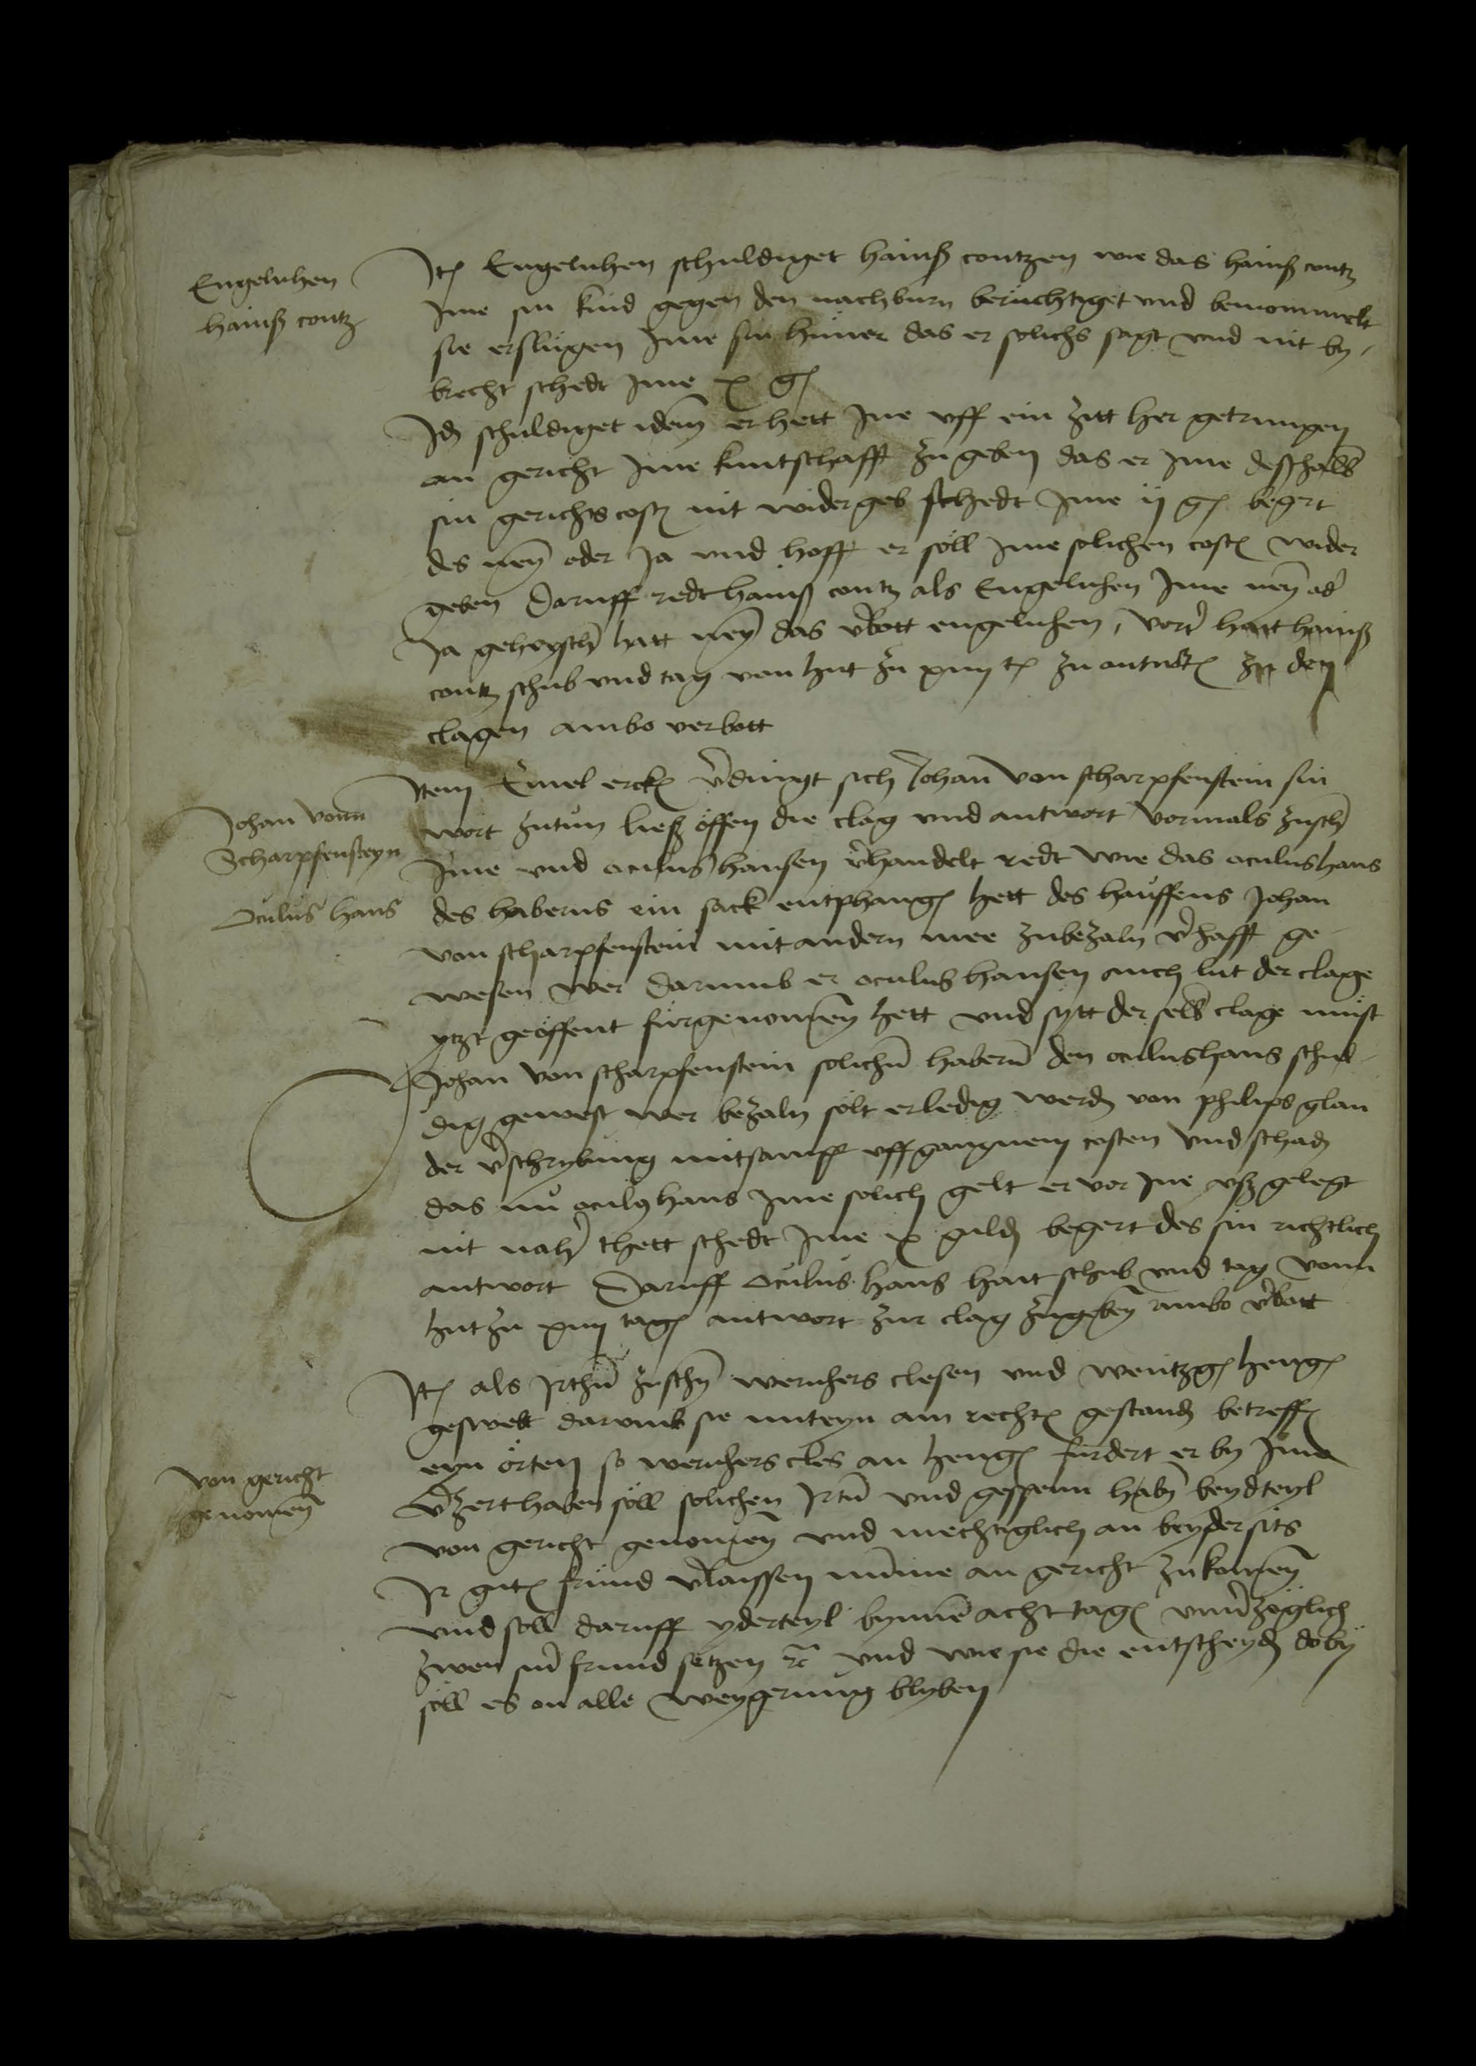 Engelnhen
hainß contz
Itē Engelnhen schuldiget hainß contzen wie das hainß contz
Ime sin kind gegen den nachburn beruchtiget vnd bemommelt
sie erslugen Ime sin huner das er solichs sagt vnd nit by-
brecht schedt Ime x gƷ
Itē schuldiget idem er hett Ine vff ein zitt her getrungen
an gericht Ime kuntschafft zu geben das er Ime deßhalb
sin gerichts costē nit widergeb schedt Ime ij gƷ begert
des neyn oder Ja vnd hofft er soll Ime solichen costē wider
geben Daruff redt hainß contz als Engelnhen Ime neyn od'
Ja geheysch hatt neyn das v'bott engelnhen, vort' hatt hainß
contz schub vnd tag von hut zu xiiij tē zu antwortē zu den
clagen ambo verbott
Johan vonn
Scharpfensteyn
Oculus hans
Item Emel erckē v'dingt sich Johan von scharpfenstein sin
wort zutun ließ offen die clag vnd antwort vormals zusch'
Ime vnd oculus hansen v'handelt redt wie das oculushans
des haberns ein sack entphangē hett des hauffens Johan
von scharpfenstein mit andern mee zubezaln v'hafft ge-
wesen wer darumb er oculus hansen auch lut der clage
ytzt geoffent furgenomen hett vnd sytt der selb clage must
Johan von scharpfenstein solichn habern den oculushans schul-
dig gewest wer bezaln solt er ledig werdē von philips glan
der v'schrybung mitsampt vffgangnem costen vnd schadē
das nu oculꝯ hans Ime solich gelt er vor Ine vßgelegt
nit nach' thett schedt Ime x guldē begert des sin richtlich
antwort Daruff oculus hans hait schub vnd tag vonn
hut zu xiiij tagē antwort zur clag zugeben ambo v'bott
von gericht
genomen
Itē als Irthū zuschn werichers clesen vnd wentzgē hengē
geswebt darumb sie mit eyn am rechtē gestandē betreffē
eyn orten so werichers cles an hengē furdert er by Ime
v'zert haben soll solichen Irtū vnd gespenn habn beydteyl
von gericht genomen vnd mechtiglich an beydersits
Ir gutē frund v'laissen nūme an gericht zukomen
vnd soll daruff yderteyl bynnē acht tagē vnu'zoglich
zwen sin' frund setzen rc vnd wie sie die entscheydē doby
soll es on alle weygerung blyben